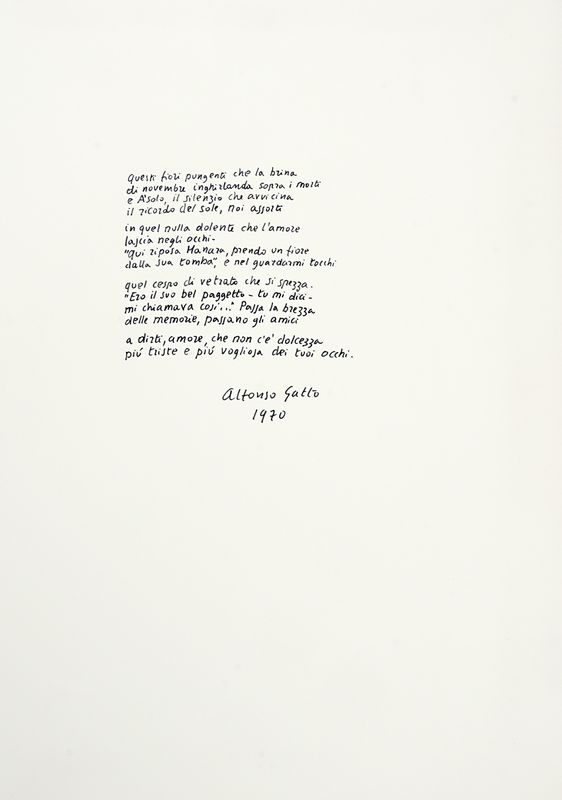 Questi fiori pungenti che la brina
di novembre inghirlanda sopra i morti
e Asolo, il silenzio che avvicina
il ricordo del sole, noi assorti
in quel nulla dolente che l'amore
lascia negli occhi-
"qui riposa Hanara, prendo un fiore
dalla sua tomba", e nel guardarmi tocchi
quel cespo di vetrato che si spezza.
"Ero il suo bel paggetto - tu mi dici -
mi chiamava così..." Passa la brezza
delle memorie, passano gli amici
a dirti, amore, che non c'e' dolcezza
piú triste e piú vogliosa dei tuoi occhi.
Alfonso Gatto
1970